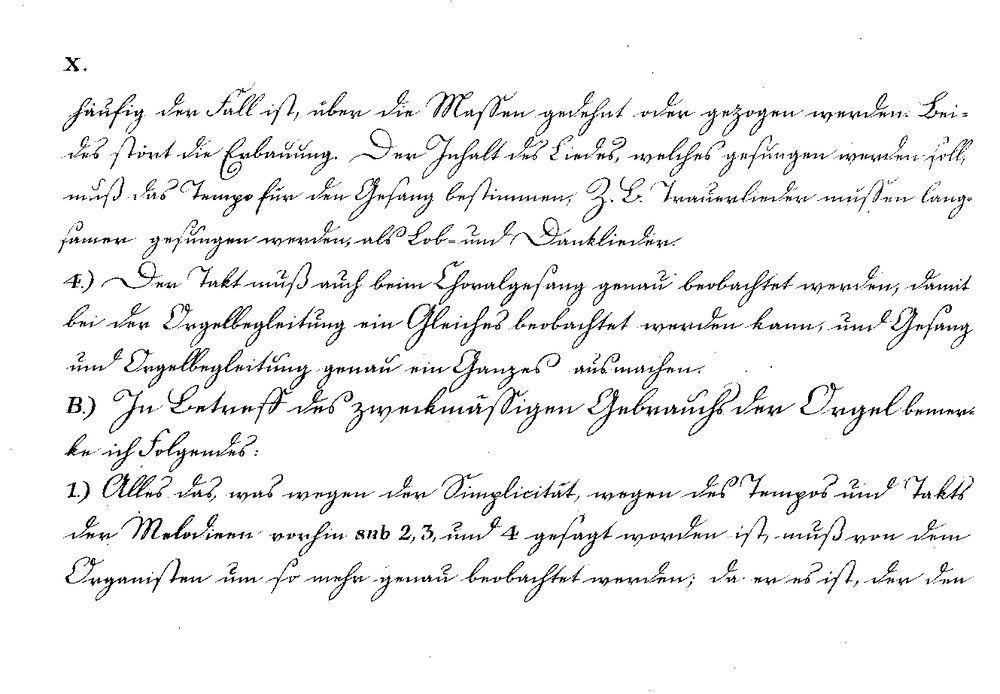 X.
häufig der Fall ist, über die Massen gedehnt oder gezogen werden. Bei-
des stört die Erbauung. Der Inhalt des Liedes, welches gesungen werden soll,
muß das Tempo für den Gesang bestimmen, Z. B. Trauerlieder müssen lang-
samer gesungen werden, als Lob- und Danklieder.
4.) Der Takt muß auch beim Choralgesang genau beobachtet werden, damit
bei der Orgelbegleitung ein Gleiches beobachtet werden kann, und Gesang
und Orgelbegleitung genau ein Ganzes ausmachen.
B.) In Betreff des zweckmässigen Gebrauchs der Orgel bemer-
ke ich Folgendes:
1.) Alles das, was wegen der Simplicität, wegen des Tempos und Takts
der Melodieen vorhin sub 2, 3, und 4 gesagt worden ist, muß von dem
Organisten um so mehr genau beobachtet werden; da er es ist, der den